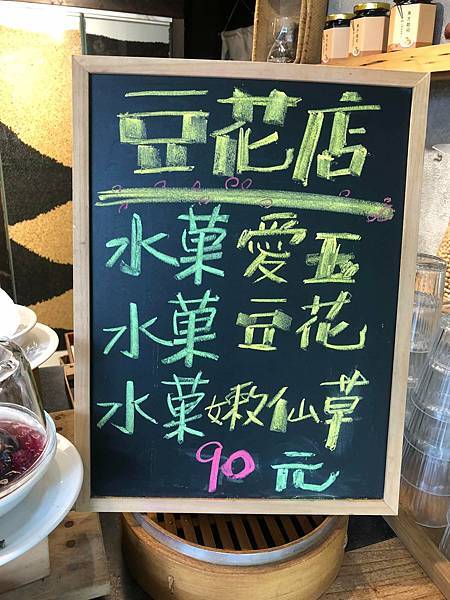 豆花店
水菓愛玉
水菓豆花
水菓嫩仙草
90元